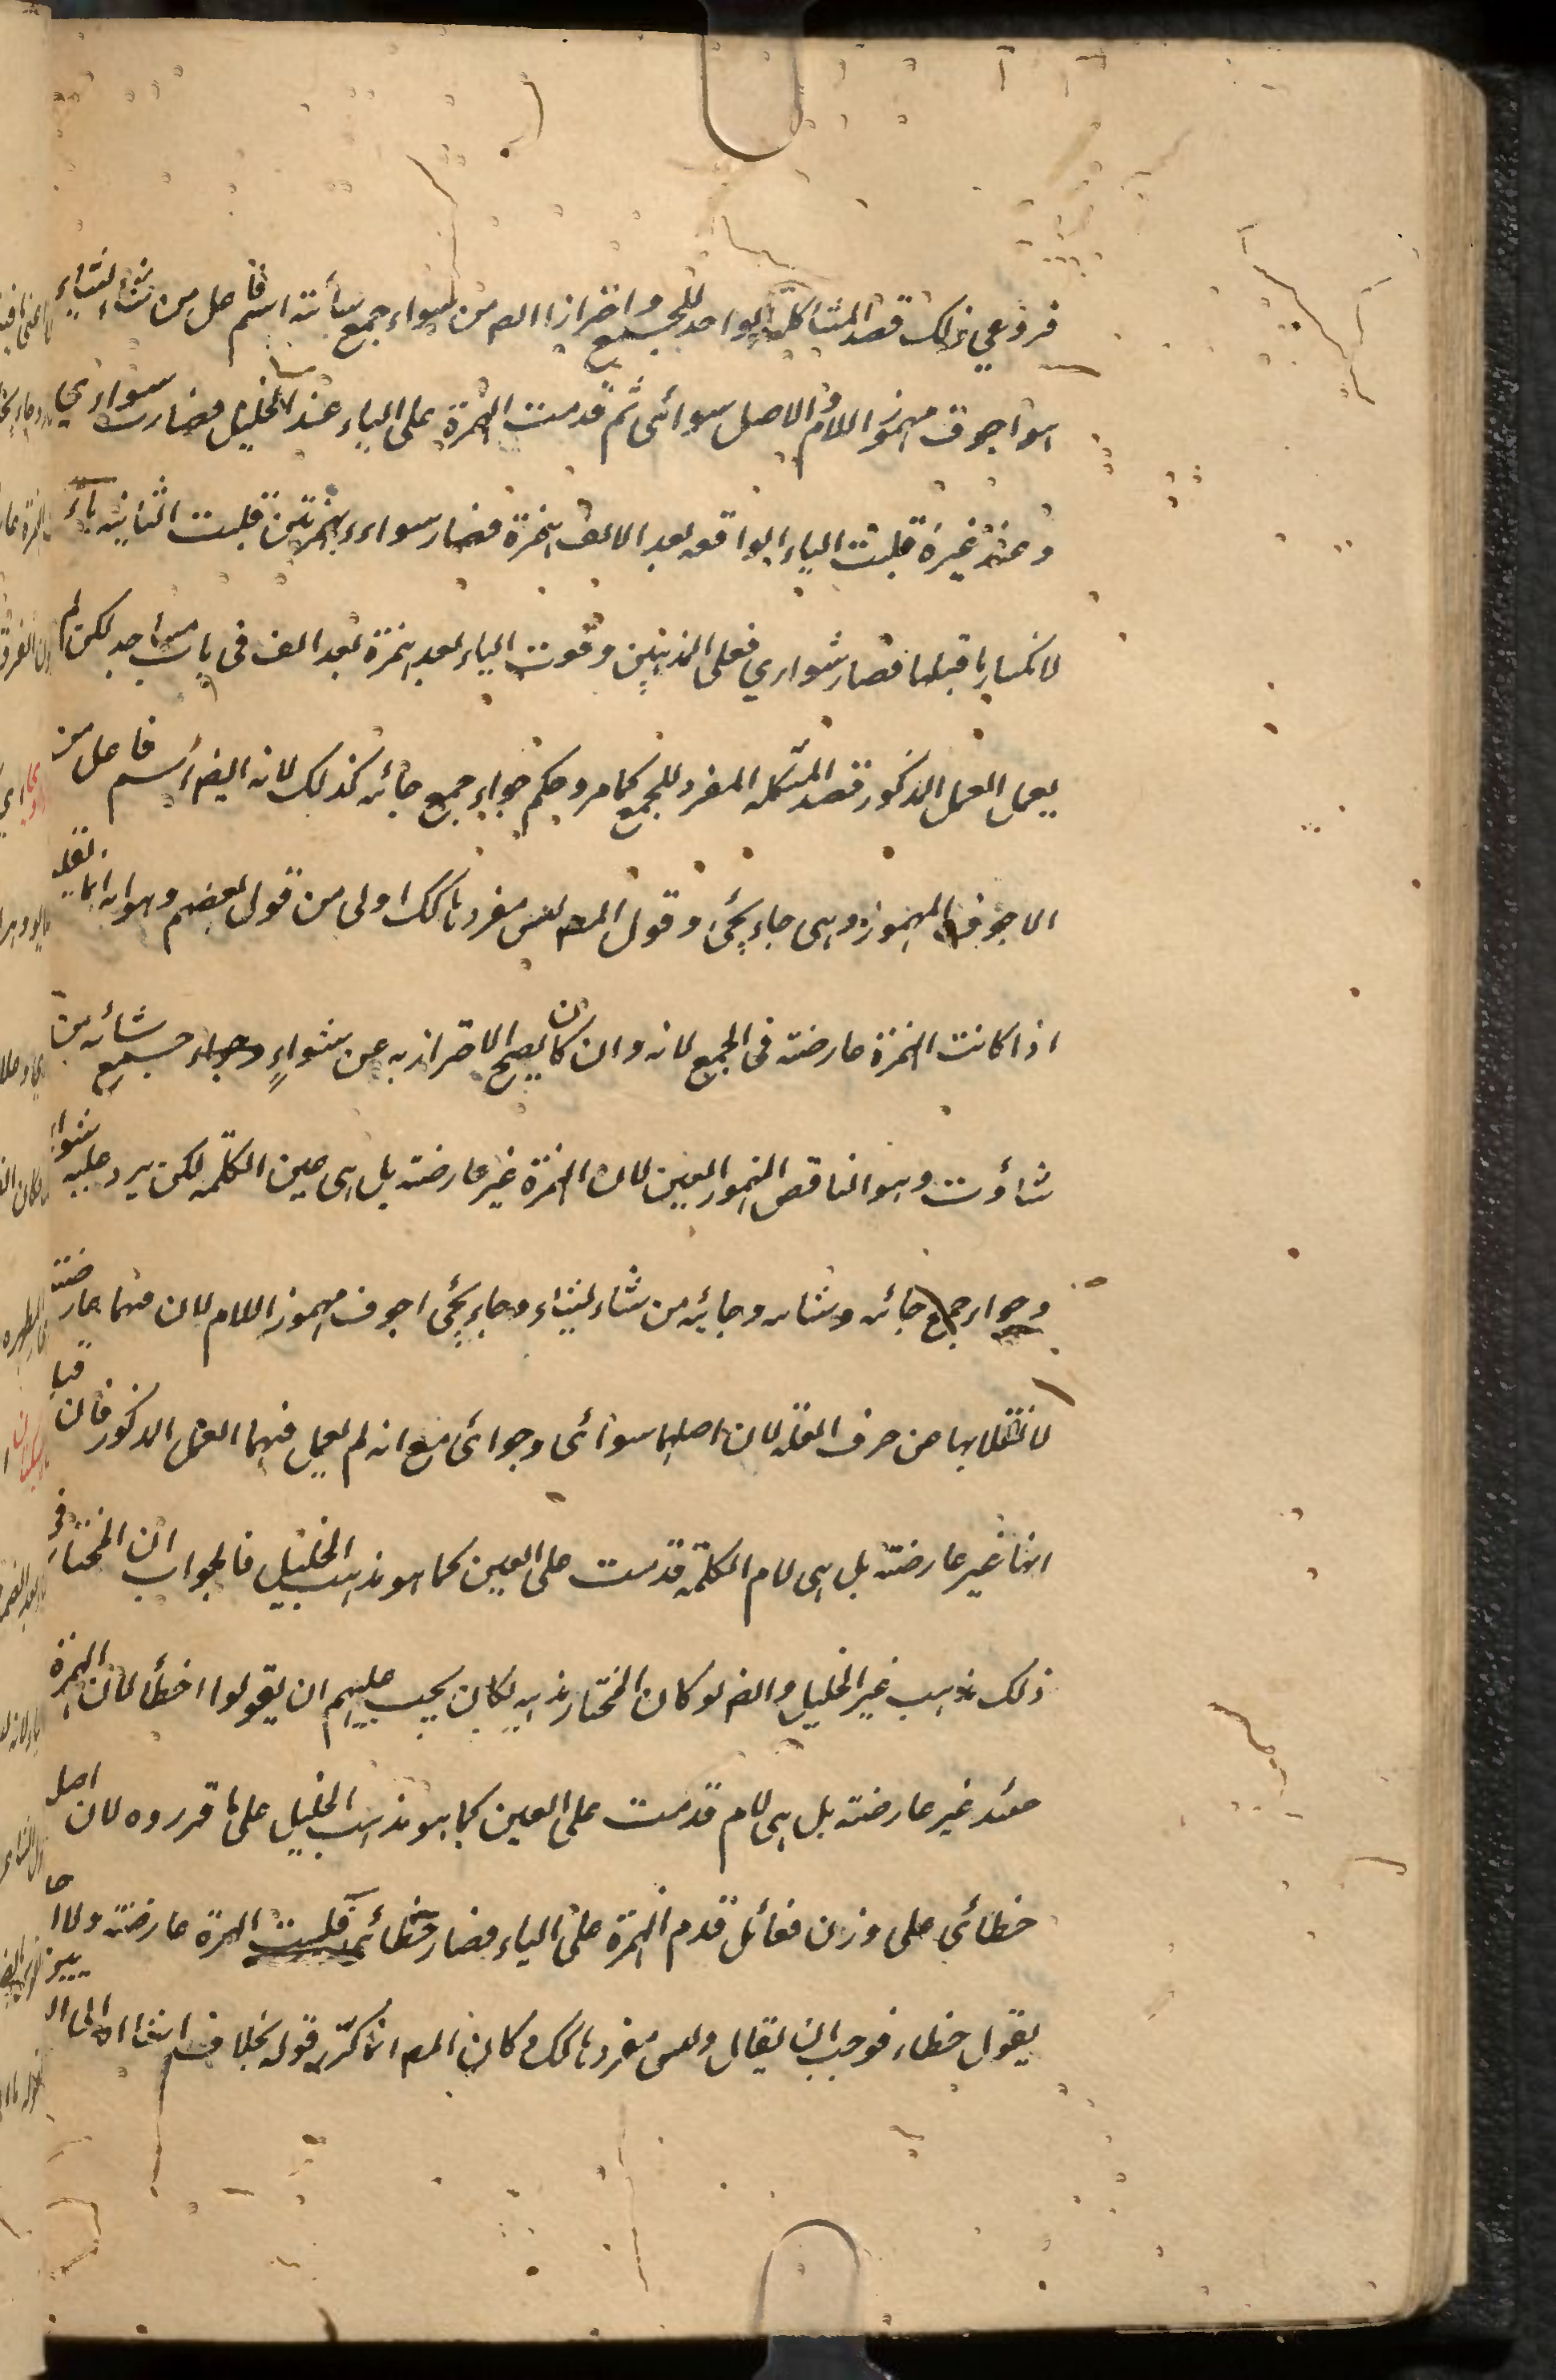 فروعي ذلك قصد المشاكلة الواحد للجمع واحترازا المص من شواء جمع شائة اسم فاعل من شاء يشاء
هو اجوف مهموز اللام والاصل شوائى ثم قدمت الهمزة على الياء عند الخليل فصارت شواءي
وعند غيره قلبت الياء الواقعه بعد الالف همزة فصار شواءء بهمزتين قلبت الثانيه ياء
لانكسار ما قبلها فصار شواءي فعلى المذهبين وقوت الياء بعد همزة بعد الف فى باب مساجد لكن لم
يعمل العمل المذكور قصد المشاكله المفرد للجمع كما مر وحكم جواء جمع جائه كذلك لانه ايضا اسم فاعل من
الاجوف المهموز وهى جاء يجئ وقول المص ليس مفردها كك اولى من قول بعضهم وهو انه انما يفعله
اذا كانت الهمزة عارضة فى الجمع لانه وان كان يصح الاحتراز به عن شواءٍ وجواء جمع شائه من
شأوت وهو الناقص المهموز العين لان الهمزة غير عارضة بل هى عين الكلمة لكن يرد عليه شواء
وجواء جمع جائه وشائه وجائيه من شاء يشاء وجاء يجئ اجوف مهموز اللام لان فيهما عارضة
لانقلابها عن حرف العلة لان اصلهما شوائى وجوائى مع انه لم يعمل فيهما العمل المذكور فان قيل
انها غير عارضة بل هى لام الكلمة قدمت على العين كما هو مذهب الخليل فالجواب ان المختار فى
ذلك مذهب غير الخليل وايضا لو كان المختار مذهبه لكان يجب عليهم ان يقولوا اخطأ لان الهمزة
عنده غير عارضة بل هى لام قدمت على العين كما هو مذهب الخليل على ما قرروه لان اصل
خطائى على وزن فعائل قدم الهمزة على الياء فصار خطائى فليست الهمزة عارضة ولا
يقول خطاء فوجب ان يقال وليس مفردها كك وكان المص انما كرر قوله بخلاف